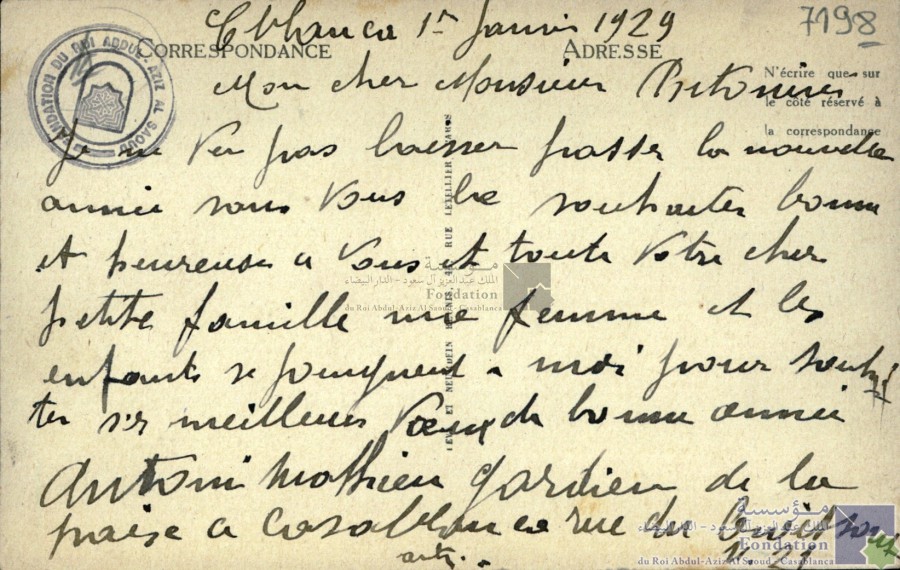 Cblanca 1er Janvier 1929
7198
CORRESPONDANCE
ADRESSE
N'écrire que sur
le côté réservé à
la correspondance
FONDATION DU ROI ABDUL-AZIZ AL SAOUD
Mon cher Monsieur
Je ne veu pas laisser passer la nouvelle
année sans vous la souhaiter bonne
et heureuse a vous et toute votre cher
petite famille ma femme et les
enfants se joingnent a moi pour souhai
ter ses meilleurs vœux de bonne année
Antoni Mathieu gardien de la
a Casablanca rue du
LEVY ET NEURDEIN RÉUNIS, 44, RUE LETELLIER, PARIS
مؤسسة
الملك عبد العزيز آل سعود - الدار البيضاء
Fondation
du Roi Abdul-Aziz Al Saoud - Casablanca
مؤسسة
الملك عبد العزيز آل سعود - الدار البيضاء
Fondation
du Roi Abdul-Aziz Al Saoud - Casablanca